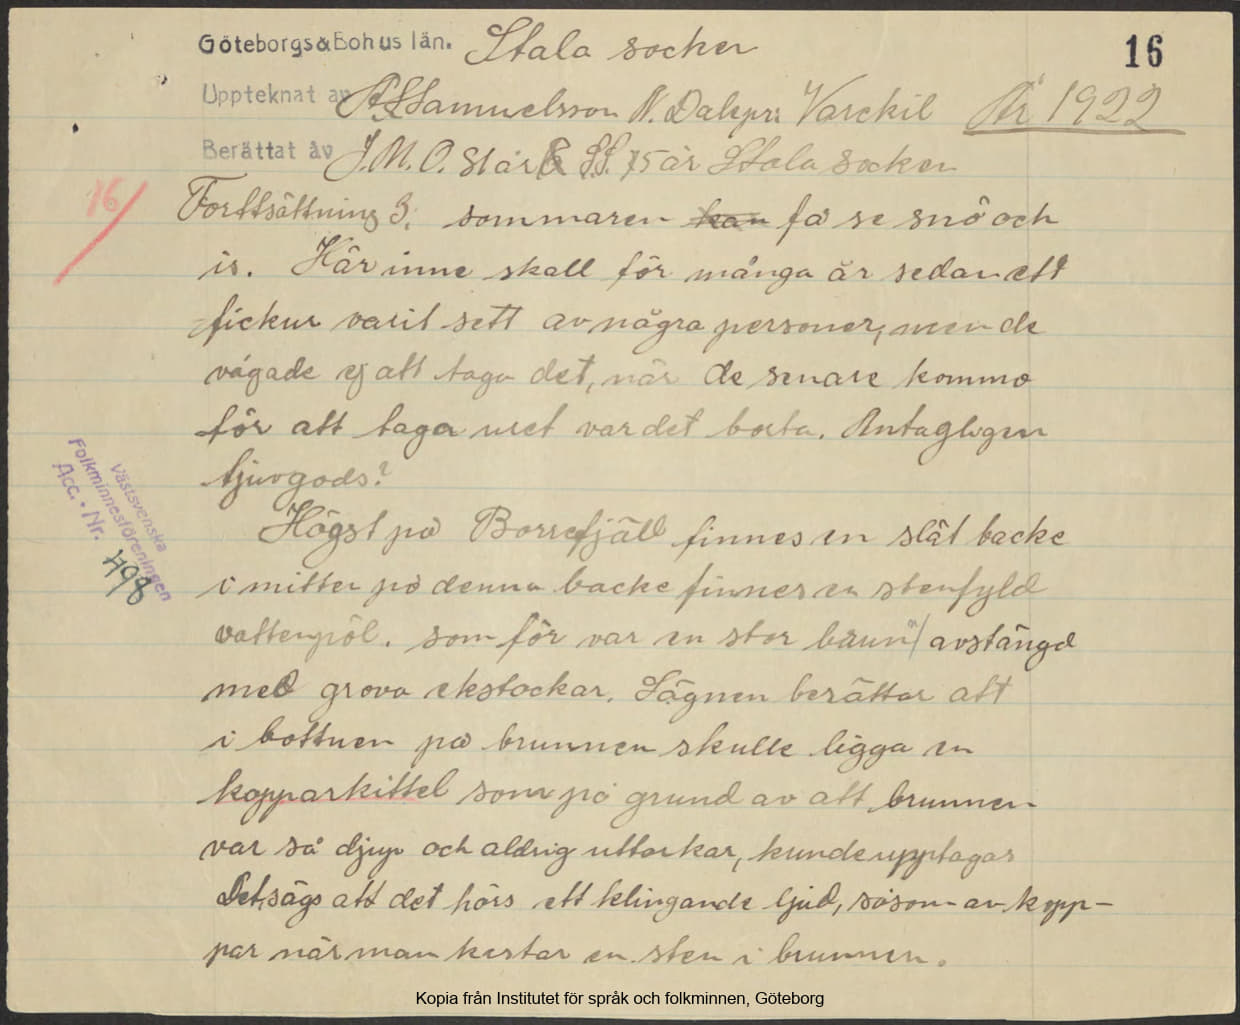 Göteborgs & Bohus län. Stala socken
16
Uppteknat av Samuelsson N. Dalepr: Varekil År 1922
Berättat av J.M.O. 75 år Stala socken
16
Forttsättning 3. sommaren kan få se snö och
is. Här inne skall för många år sedan ett
fickur varit sett av några personer, men de
vågade ej att taga det, när de senare kommo
för att taga uret var det borta. Antagligen
tjuvgods?
Västsvenska
Folkminnesföreningen
Acc.-Nr. 498
Högst på Borrefjäll finnes en slät backe
i mitten på denna backe finnes en stenfyld
vattenpöl. som för var en stor brun avstängd
med grova ekstockar. Sägnen berättar att
i bottnen på brunnen skulle ligga en
kopparkittel som på grund av att brunnen
var så djup och aldrig uttorkar, kunde upptagas
Det sägs att det hörs ett klingande ljud, såsom av kopp-
par när man kastar en sten i brunnen.
Kopia från Institutet för språk och folkminnen, Göteborg